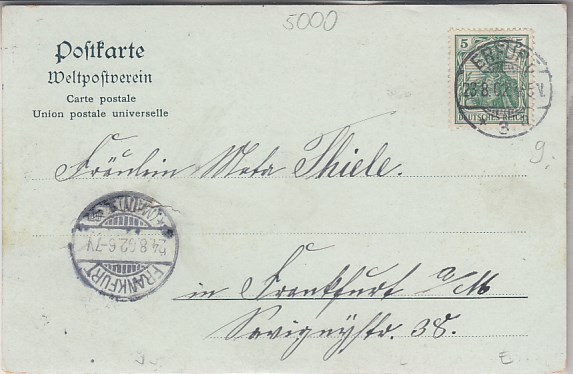 5000
Postkarte
Weltpostverein
Carte postale
Union postale universelle
5 5
DEUTSCHES REICH
ERFURT
23.8.02
* 3
9.
Fräulein Meta Thiele.
(MAIN)
24.8.02.6-7V
FRANKFURT
in Frankfurt a/M
Savignystr. 38.
E